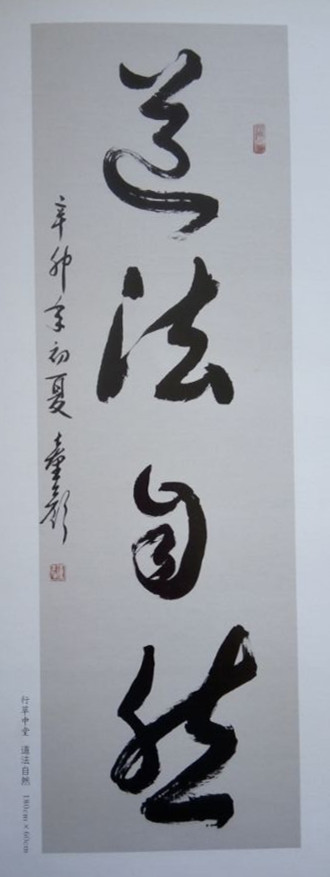 道法自然
辛卯年初夏 童彦
行草中堂 道法自然 180cm×60cm